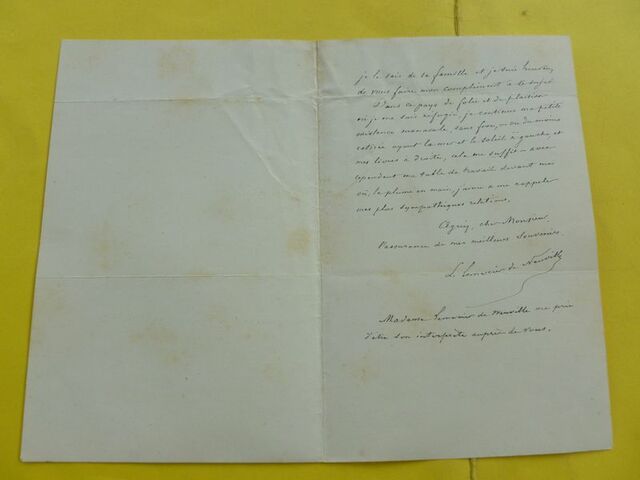 je le sais de sa famille et je suis heureux
de vous faire mon compliment à ce sujet
Dans ce pays de folie et du plaisir
où je me suis réfugié, je continue ma petite
existence monacale, sans froc, ou du moins
cotirée ayant la mer et le soleil à gauche, et
mes livres à droite, cela me suffit avec
cependant ma table de travail devant moi
où, la plume en main, j'aime à me rappeler
mes plus sympathiques relations.
Agréez, cher Monsieur,
l'assurance de mes meilleurs souvenirs.
L. Lemercier de Neuville
Madame Lemercier de Neuville me prie
d'être son interprète auprès de vous.